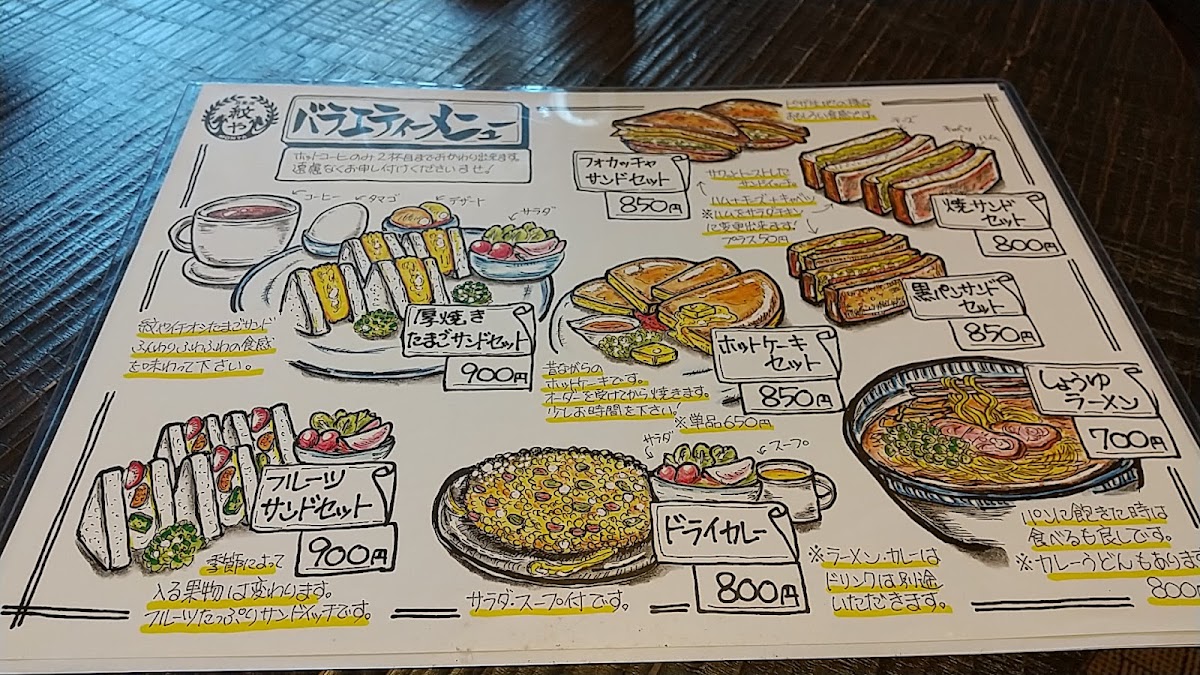 紋や
MONYA
バラエティーメニュー
ホットコーヒーのみ2杯目までおかわり出来ます。
遠慮なくお申し付けくださいませ!
コーヒー
タマゴ
デザート
サラダ
厚焼き
たまごサンドセット
900円
紋やイチオシたまごサンド
ふんわりふわふわの食感
を味わって下さい。
フォカッチャ
サンドセット
850円
おもしろい食感です。
チーズ
キャベツ
ハム
焼サンド
セット
800円
サクッとトーストした
サンドイッチ。
ハム+チーズ+キャベツ
※ハムをサラダチキン
に変更出来ます!
プラス50円
黒パンサンド
セット
850円
ホットケーキ
セット
850円
昔ながらの
ホットケーキです。
オーダーを受けてから焼きます。
少しお時間を下さい!
※単品650円
しょうゆ
ラーメン
700円
パンに飽きた時は
食べるも良しです。
※カレーうどんもありま
800
フルーツ
サンドセット
900円
季節によって
入る果物は変わります。
フルーツたっぷりサンドイッチです。
サラダ
スープ
ドライカレー
800円
サラダ・スープ付です。
※ラーメン・カレーは
ドリンクは別途
いただきます。